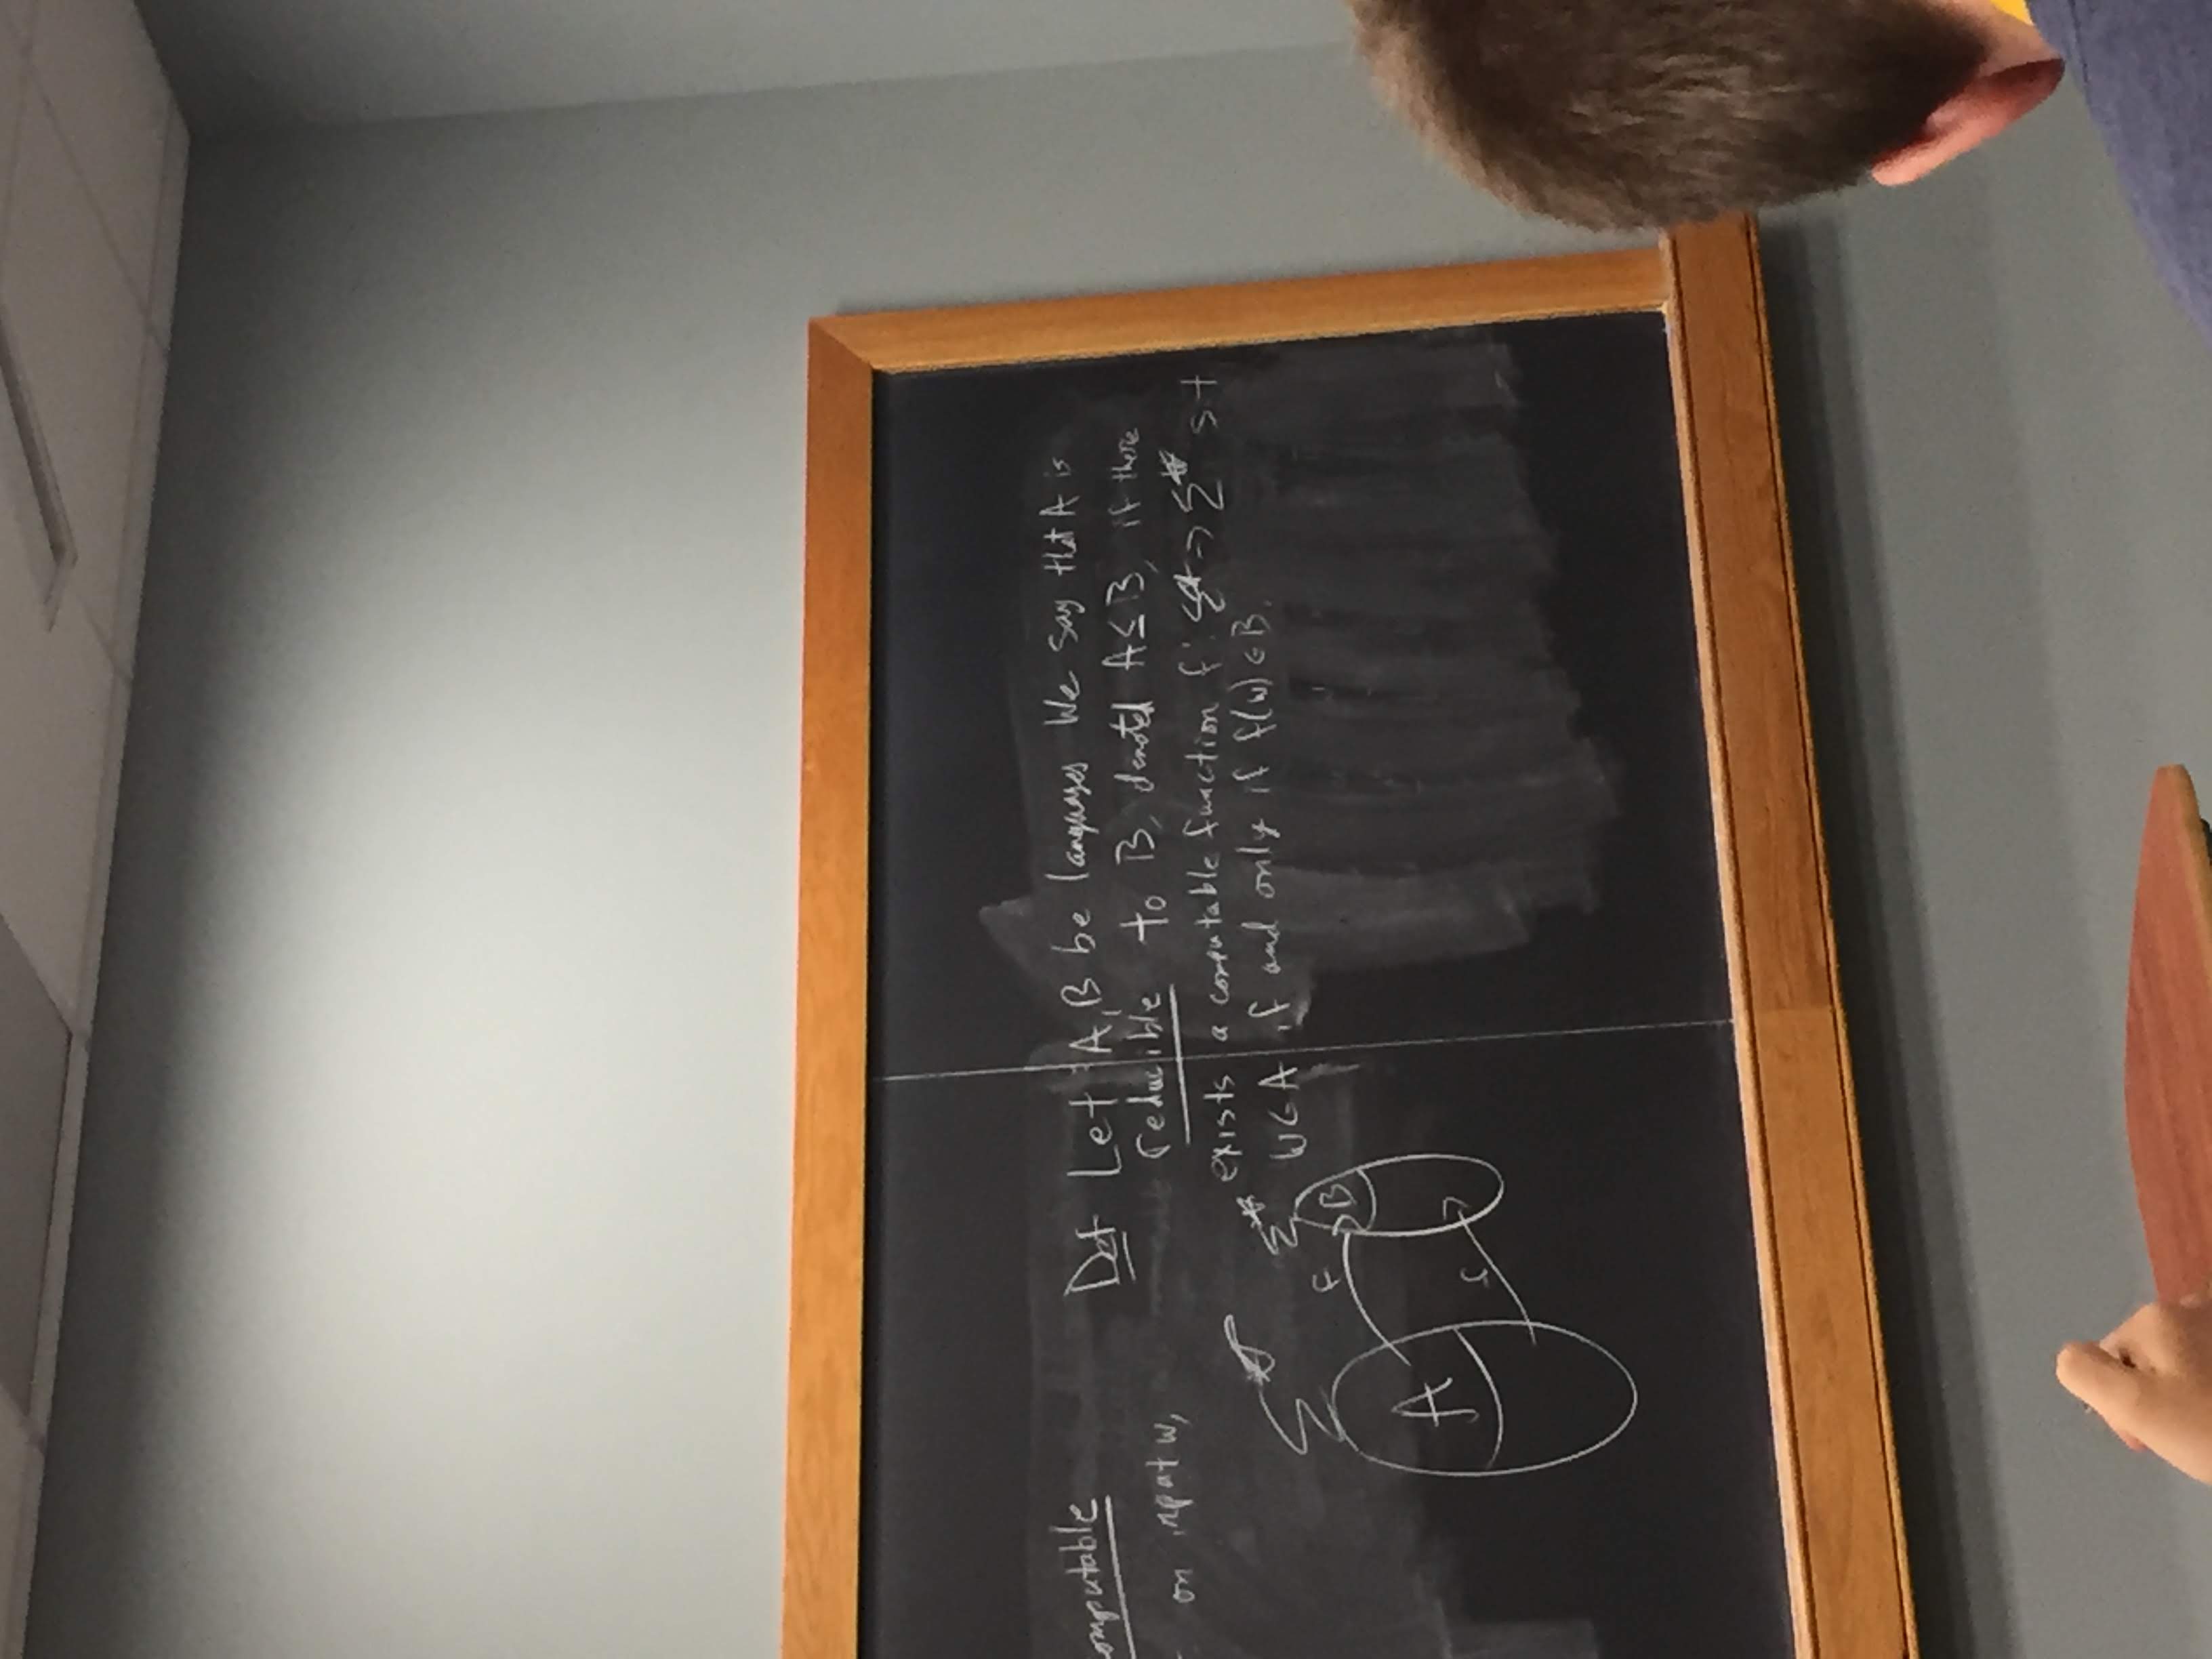 omputable
on input w,
Def Let A, B be languages We say that A is
reducible to B, denoted A ≤ B, if there
exists a computable function f: Σ* → Σ* st
w ∈ A if and only if f(w) ∈ B.
Σ* Σ*
f B
A
f